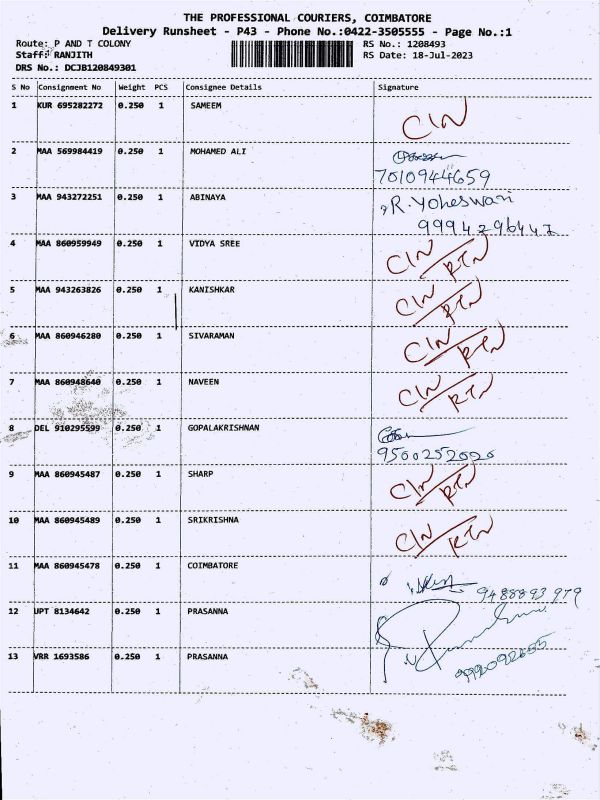 THE PROFESSIONAL COURIERS, COIMBATORE
Delivery Runsheet - P43 - Phone No.:0422-3505555 - Page No.:1
Route: P AND T COLONY RS No.: 1208493
Staff: RANJITH RS Date: 18-Jul-2023
DRS No.: DCJB120849301
S No Consignment No Weight PCS Consignee Details Signature
1 KUR 695282272 0.250 1 SAMEEM CIN
2 MAA 569984419 0.250 1 MOHAMED ALI
7010944659
3 MAA 943272251 0.250 1 ABINAYA R. Yoheswari
9994296447
4 MAA 860959949 0.250 1 VIDYA SREE CIN/RTN
5 MAA 943263826 0.250 1 KANISHKAR CIN/RTN
6 MAA 860946280 0.250 1 SIVARAMAN CIN/RTN
7 MAA 860948640 0.250 1 NAVEEN CIN/RTN
8 DEL 910295599 0.250 1 GOPALAKRISHNAN
9500252020
9 MAA 860945487 0.250 1 SHARP CIN/RTN
10 MAA 860945489 0.250 1 SRIKRISHNA CIN/RTN
11 MAA 860945478 0.250 1 COIMBATORE
9488893979
12 UPT 8134642 0.250 1 PRASANNA
13 VRR 1693586 0.250 1 PRASANNA